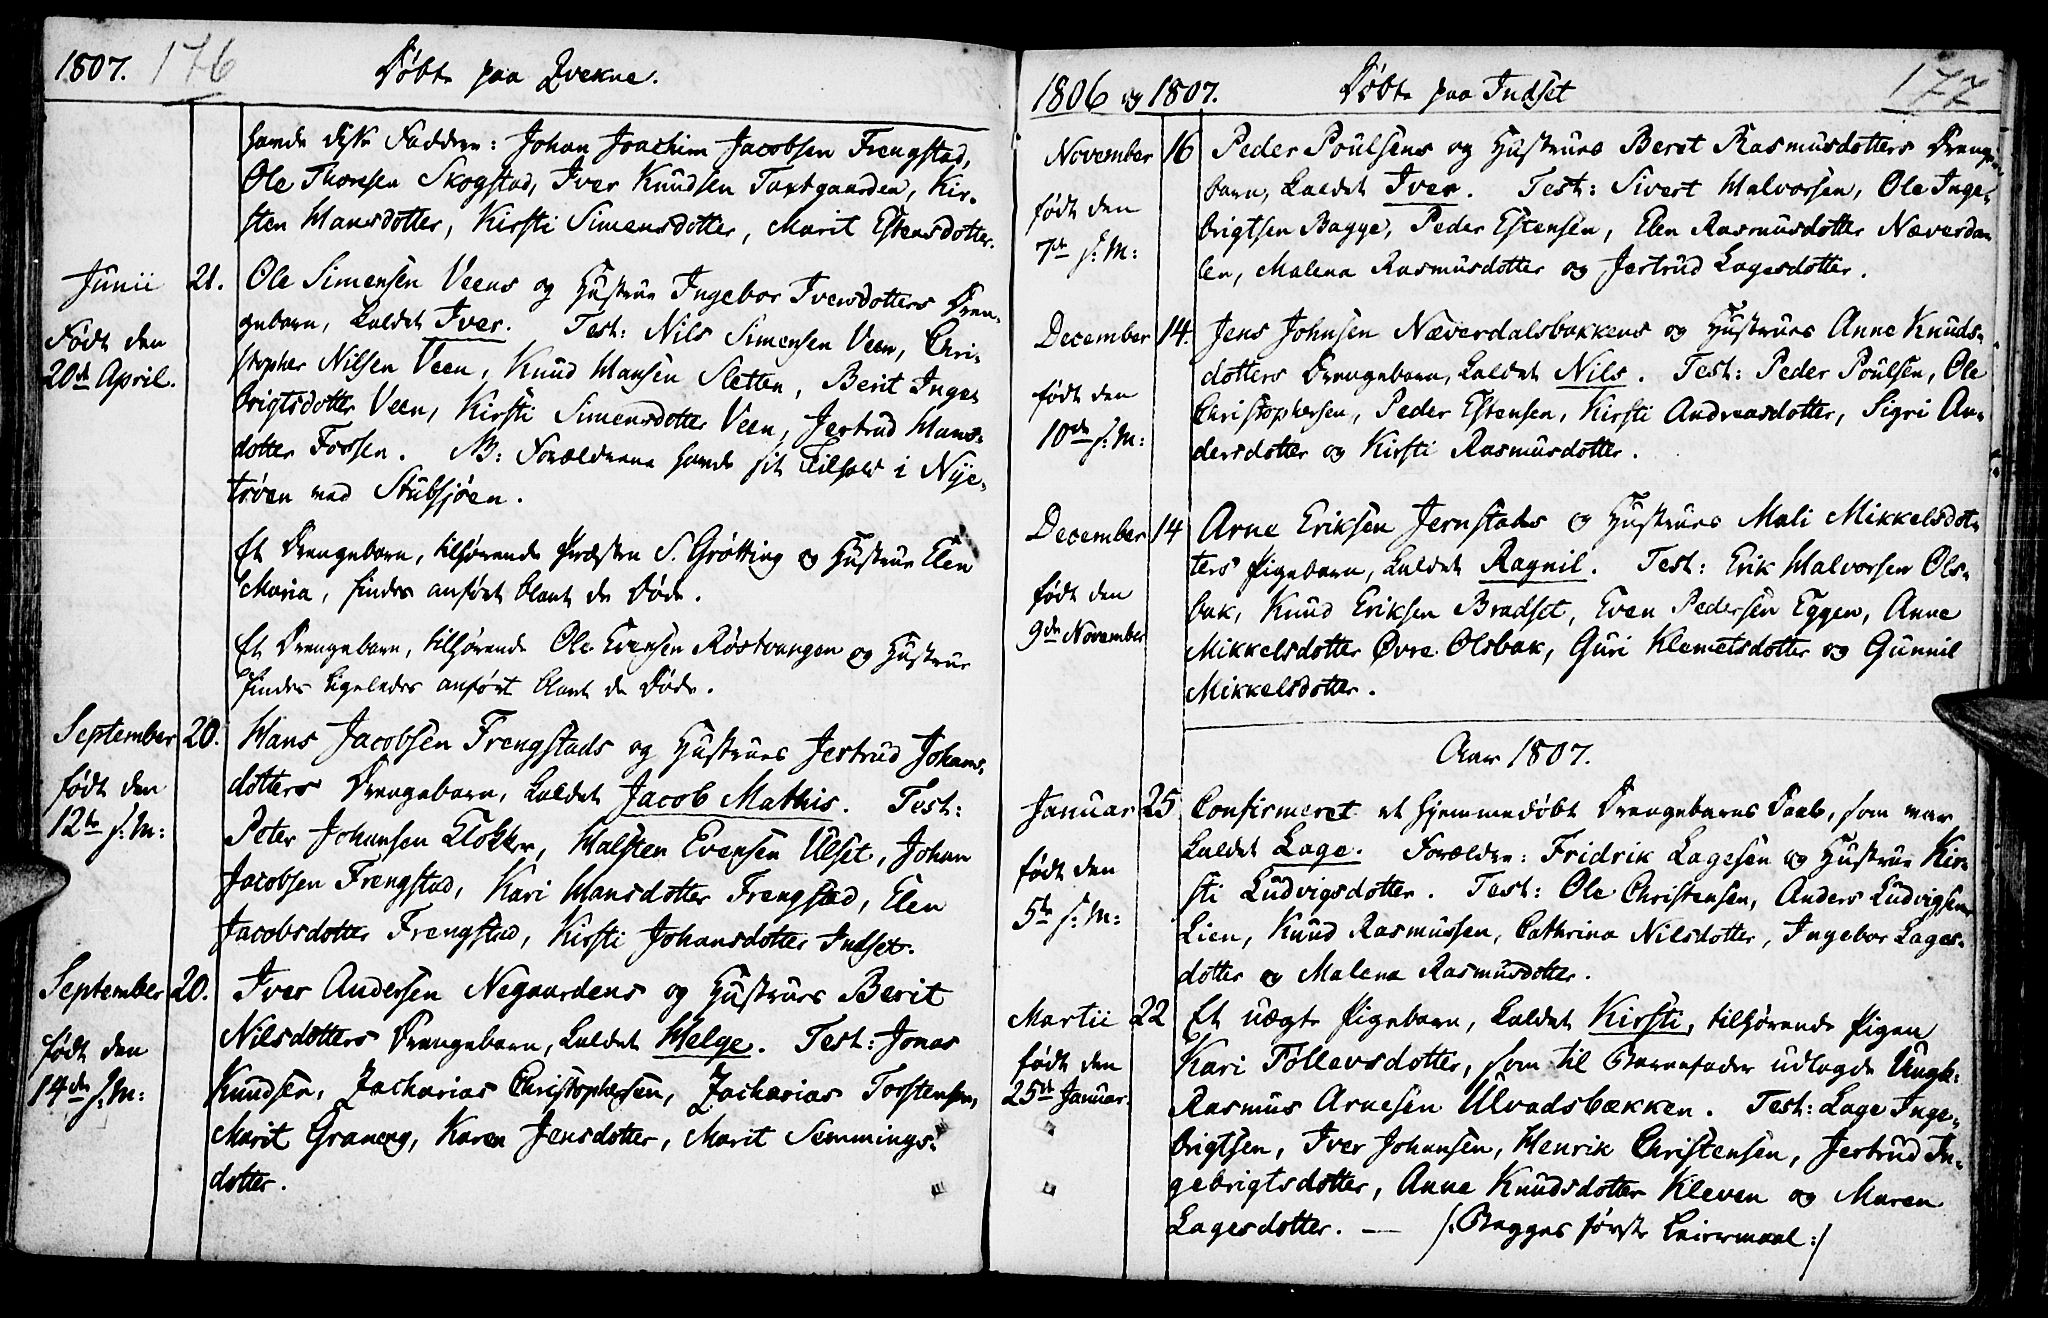 1807. 176 Døbte paa Qvekne.
havde disse Faddere: Johan Joachim Jacobsen Frengstad,
Ole Thoresen Skogstad, Iver Knudsen Tovtgaarden, Kir-
sten Hansdotter, Kirsti Simensdotter, Marit Estensdotter.
Junii 21. Ole Simensen Veens og Hustrue Ingebor Iversdotters Dren-
gebarn, kaldet Iver. Test: Nils Simensen Veen, Chri-
Født den
stopher Nilsen Veen, Knud Hansen Sletten, Berit Inge-
20de April.
brigtsdotter Veen, Kirsti Simensdotter Veen, Jertrud Hans-
dotter Fossen. NB: Forældrene havde sit Tilhold i Nye-
trøen ved Stubsjøen.
Et Drengebarn, tilhørende Præsten S. Grøtting og Hustrue Elen
Maria, findes anført blant de Døde.
Et Drengebarn, tilhørende Ole Evensen Røstvangen og Hustrue
findes ligeledes anført blant de Døde.
September 20. Hans Jacobsen Frengstads og Hustrues Jertrud Johans-
født den
dotters Drengebarn, kaldet Jacob Mathis. Test:
12te s: M:
Peter Johansen Klokker, Halsten Evensen Ulset, Johan
Jacobsen Frengstad, Kari Hansdotter Frengstad, Elen
Jacobsdotter Frengstad, Kirsti Johansdotter Indset.
September 20. Iver Andersen Negaardens og Hustrues Berit
født den
Nilsdotters Drengebarn, kaldet Helge. Test: Jonas
14de s: M:
Knudsen, Zacharias Christophersen, Zacharias Torstensen,
Marit Graneng, Karen Jensdotter, Marit Semmings-
dotter.
1806 og 1807. Døbte paa Indset 177
November 16 Peder Poulsens og Hustrues Beret Rasmusdotters Drenge-
barn, kaldet Iver. Test: Sivert Halvorsen, Ole Inge-
født den
brigtsen Bagge, Peder Estensen, Elen Rasmusdotter Næverda-
7de s: M:
len, Malena Rasmusdotter og Jertrud Lagesdotter.
December 14. Jens Johnsen Næverdalsbakkens og Hustrues Anne Knuds-
dotters Drengebarn, kaldet Nils. Test: Peder Poulsen, Ole
født den
Christophersen, Peder Estensen, Kirsti Andreasdotter, Sigri An-
10de s: M:
dersdotter og Kirsti Rasmusdotter.
December 14 Arne Eriksen Jernstads og Hustrues Mali Mikkelsdot-
ters Pigebarn, kaldet Ragnil. Test: Erik Halvorsen Ols-
født den
bak, Knud Eriksen Bradset, Even Pedersen Eggen, Anne
9de November
Mikkelsdotter Øvre Olsbak, Guri Klemetsdotter og Gunnil
Mikkelsdotter.
Aar 1807.
Januar 25 Confirmeret et hjemmedøbt Drengebarns Daab, som var
kaldet Lage. Forældre: Fridrik Lagesen og Hustrue Kir-
født den
sti Ludvigsdotter. Test: Ole Christensen, Anders Ludvigsen
5te s: M:
Lien, Knud Rasmussen, Cathrina Nilsdotter, Ingebor Lages-
dotter og Malena Rasmusdotter.
Martii 22 Et uægte Pigebarn, kaldet Kirsti, tilhørende Pigen
født den
Kari Tollevsdotter, som til Barnefader udlagde Ungk:
25de Januar.
Rasmus Arnesen Ulvadsbækken. Test: Lage Inge-
brigtsen, Iver Johansen, Henrik Christensen, Jertrud In-
gebrigtsdotter, Anne Knudsdotter Kleven og Maren
Lagesdotter. — /: Begges første Leiermaal :/